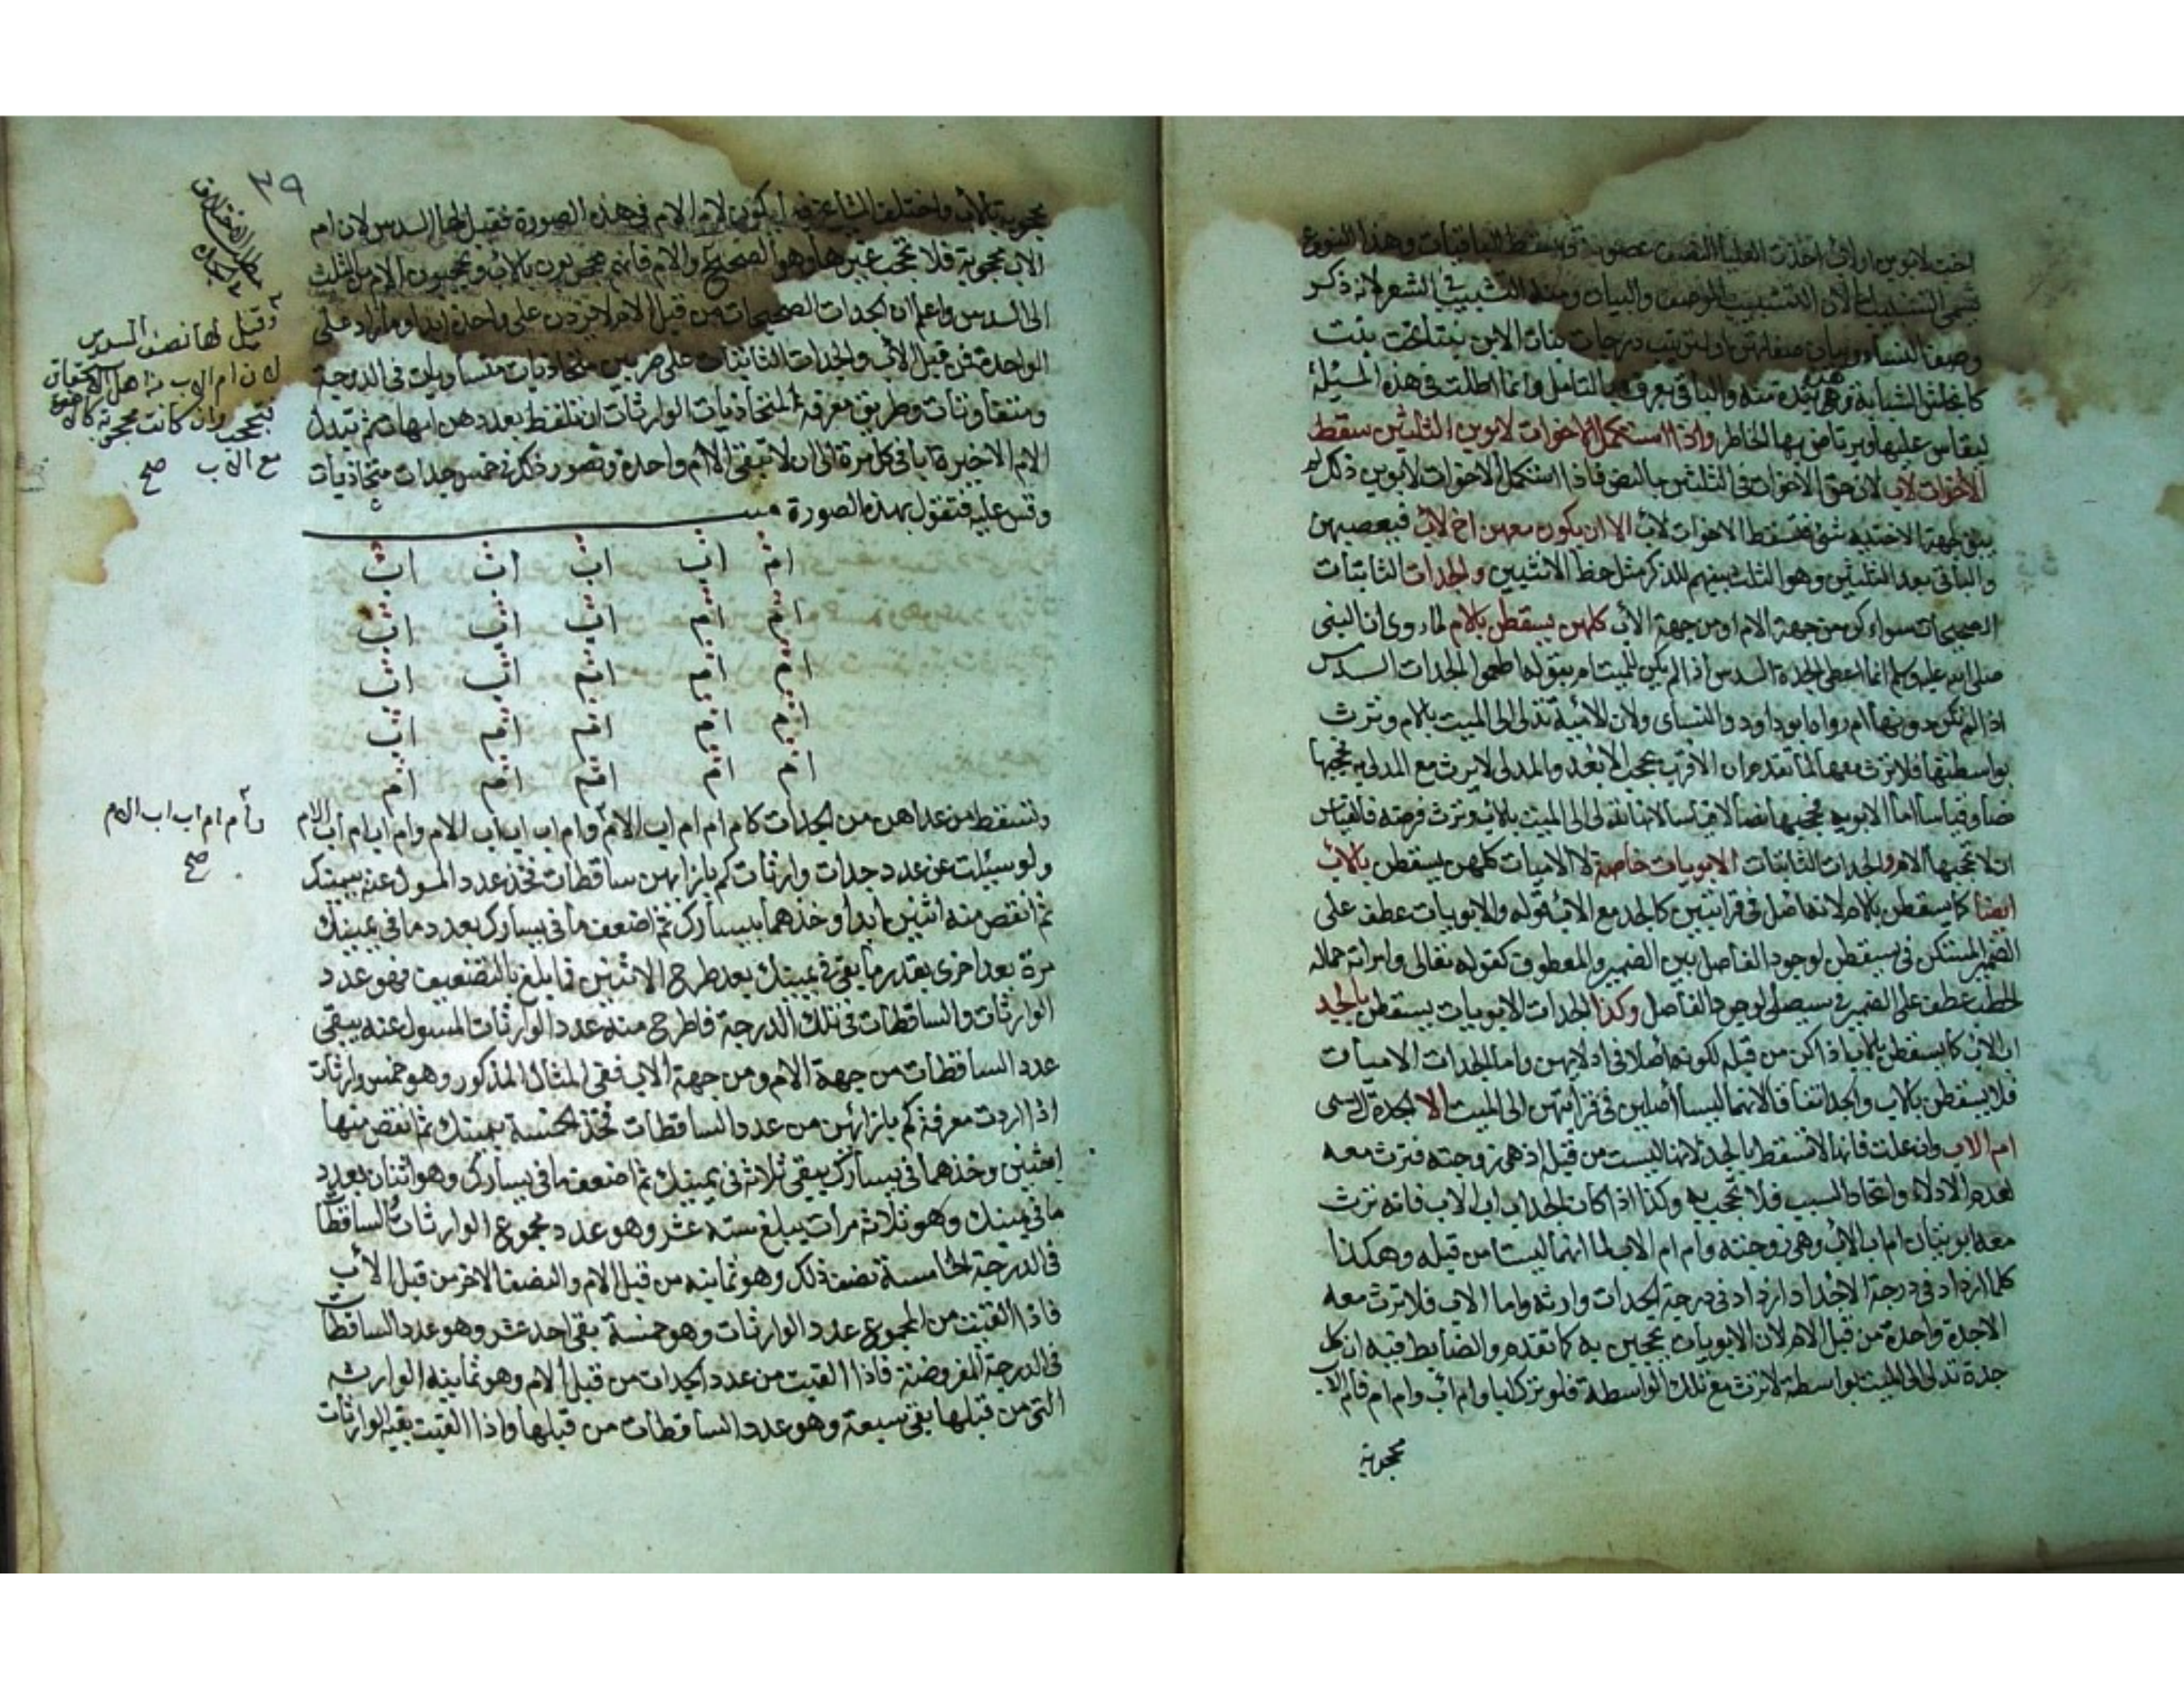 اخت لابوين اولاب اخذت العليا النصف عصوبة وتسقط الباقيات وهذا النوع
يسمى التشبيب اما لان التشبيب الوصف والبيان ومنه التشبيب في الشعر لانه ذكر
وصف النساء وبيان صفاتهن اولترتيب درجات بنات الابن بنت تحت بنت
كما في المسئلة الثانية وهي هذه منه والباقي يعرف بالتأمل وانما اطلت في هذه المسئلة
ليقاس عليها ويرتاض بها الخاطر واذا استكمل الاخوات لابوين الثلثين سقط
الاخوات لاب لان حق الاخوات في الثلثين بالنص فاذا استكمل الاخوات لابوين ذلك لم
يبق لجهة الاختية شئ فتسقط الاخوات لاب الا ان يكون معهن اخ لاب فيعصبهن
والباقي بعد الثلثين وهو الثلث بينهم للذكر مثل حظ الانثيين والجدات الثابتات
الصحيحات سواء كن من جهة الام او من جهة الاب كلهن يسقطن بالام لما روى ان النبي
صلى الله عليه وسلم انما اعطى الجدة السدس اذا لم يكن للميت ام بقوله اطعموا الجدات السدس
اذا لم تكن دونها ام رواه ابو داود والنسائ ولان الامية تدلى الى الميت بالام وترث
بواسطتها فلا ترث معها لما تقدم ان الاقرب يحجب الابعد والمدلى لا يرث مع المدلى به فحجبها
نصا وقياسا اما الابوية فحجبها نصا لا قياسا لانها تدلى الى الميت بالاب وترث فرضه فالقياس
ان لا تحجبها الام والجدات الثابتات الابويات خاصة لا الاميات كلهن يسقطن بالاب
ايضا كما يسقطن بالام لانه اصل في قرابتهن كالجد مع الاب قوله والابويات عطف على
الضمير المستكن في يسقطن لوجود الفاصل بين الضمير والمعطوف كقوله تعالى وامراته حمالة
الحطب عطف على الضمير في سيصلى لوجود الفاصل وكذا الجدات الابويات يسقطن بالجد
اب الاب كما يسقطن بالاب اذا كن من قبله لكونه اصلا في ادلائهن واما الجدات الاميات
فلا يسقطن بالاب والجد اتفاقا لانهما ليسا اصلين في قرابتهن الى الميت الا الجدة التي تسمى
ام الاب وان علت فانها لا تسقط بالجد لانها ليست من قبله اذ هي زوجته فترث معه
لعدم الادلاء واتحاد السبب فلا تحجب به وكذا اذا كان الجد اب اب الاب فانه ترث
معه ابويتان ام اب الاب وهي زوجته وام ام الاب لما انهما ليستا من قبله وهكذا
كلما ازداد في درجة الاجداد ازداد في درجة الجدات وارثة واما الاب فلا ترث معه
الا جدة واحدة من قبل الام لان الابويات يحجبن به كما تقدم والضابط فيه ان كل
جدة تدلى الى الميت بواسطة لا ترث مع تلك الواسطة فلو ترك ابا وام اب وام ام فام الاب
محجوبة
٣٩
محجوبة بالاب واختلف المشايخ فيه ايكون لام الام في هذه الصورة فقيل لها السدس لان ام
الاب محجوبة فلا تحجب غيرها وهو الصحيح والام فانهم محجوبون بالاب ويحجبون الام من الثلث
الى السدس واعلم ان الجدات الصحيحات من قبل الام لا يزدن على واحدة ابدا وما زاد على
الواحدة فمن قبل الاب والجدات الثابتات على ضربين متحاذيات متساويات في الدرجة
ومتفاوتات وطريق معرفة المتحاذيات الوارثات ان تلفظ بعددهن امهات ثم تبدل
الام الاخيرة ابا في كل مرة الى ان لا تبقى الا ام واحدة وتصور ذلك في خمس جدات متحاذيات
وقس عليه فتقول بهذه الصورة ميت
ام اب اب اب اب
ام ام اب اب اب
ام ام ام اب اب
ام ام ام ام اب
ام ام ام ام ام
وتسقط من عداهن من الجدات كام ام ام اب الام وام اب اب اب الام وام اب ام اب الام
ولو سئلت عن عدد جدات وارثات كم بازائهن ساقطات فخذ عدد المسول عنه بيمينك
ثم انقص منه اثنين ابدا وخذهما بيسارك ثم اضعف ما في يسارك بعدد ما في يمينك
مرة بعد اخرى بقدر ما بقى في يمينك بعد طرح الاثنين فما يبلغ بالتضعيف فهو عدد
الوارثات والساقطات في تلك الدرجة فاطرح منه عدد الوارثات المسول عنه يبقى
عدد الساقطات من جهة الام ومن جهة الاب ففي المثال المذكور وهو خمس وارثات
اذا اردت معرفة كم بازائهن من عدد الساقطات فخذ الخمسة بيمينك ثم انقص منها
اثنين وخذهما في يسارك يبقى ثلاثة في يمينك ثم اضعف ما في يسارك وهو اثنان بعدد
ما في يمينك وهو ثلاث مرات يبلغ ستة عشر وهو عدد مجموع الوارثات والساقطات
في الدرجة الخامسة نصف ذلك وهو ثمانية من قبل الام والنصف الاخر من قبل الاب
فاذا القيت من المجموع عدد الوارثات وهو خمسة بقى احد عشر وهو عدد الساقطات
في الدرجة المفروضة فاذا القيت من عدد الجدات من قبل الام وهو ثمانية الوارثة
التي من قبلها بقى سبعة وهو عدد الساقطات من قبلها واذا القيت بقية الوارثات
وقيل لها نصف السدس
لان ام الاب من اهل الاستحقاق
فتحجب وان كانت محجوبة كالاخوة
مع الاب صح
وام ام اب اب الام
صح